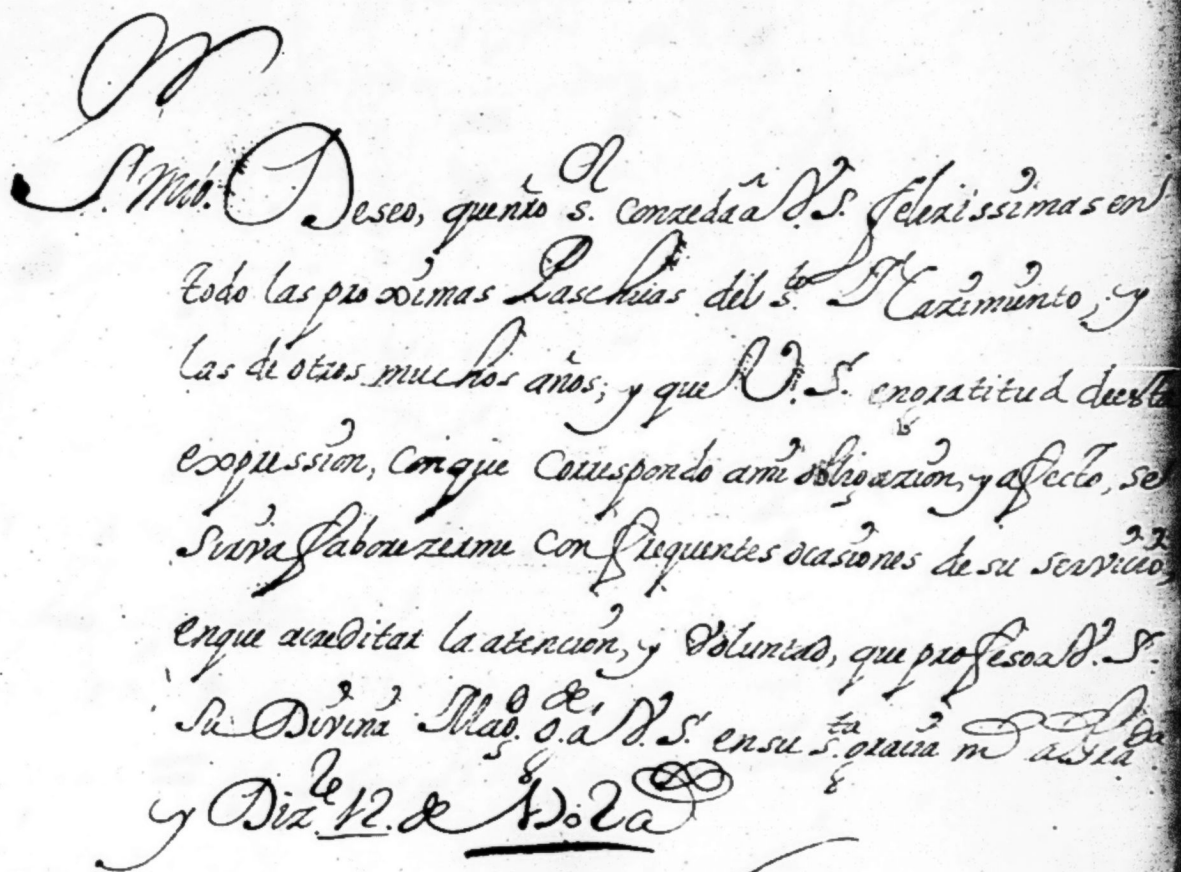 S.r mio. Deseo, que nrõ s.or conzeda a V. S. felexissimas en
todo las proximas Paschuas del s.to Nazimiento, y
las de otros muchos años; y que V. S. en gratitud de esta
expression, con que correspondo a mi obligazion, y afecto, se
sirva faborezerme con frequentes ocasiones de su servicio,
en que acreditar la atencion, y Voluntad, que profeso a V. S.
Su Divina Mag.d g.de a V. S. en su s.ta gracia m.s a.s Gra.da
y Diz.re 12. de